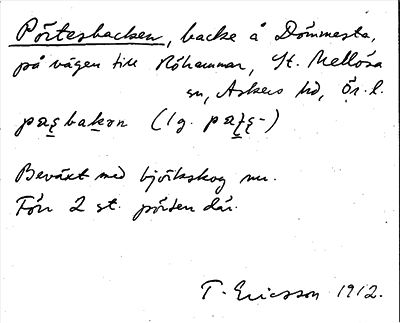 Pörtesbacken, backe å Dömmesta,
på vägen till Nóhammar, St. Mellösa
sn, Askers hd, Ör. l.
(1 g.
Beväxt med björkskog nu.
Förr 2 st. pörten där.
T. Ericsson 1912.